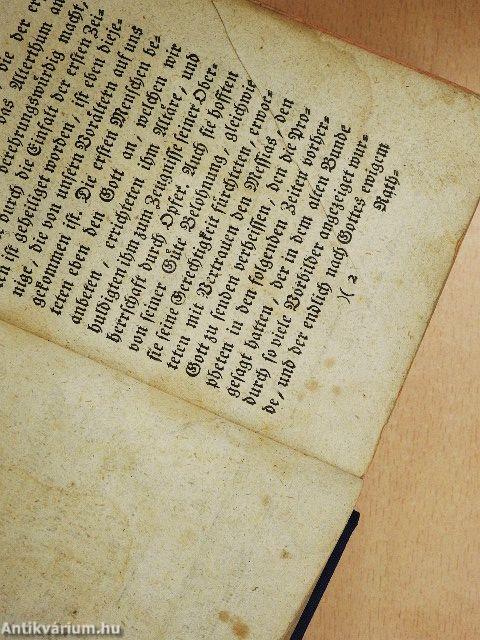 die der er
das Alterthum an
verehrungswürdig macht,
durch die Einfalt der ersten Zei-
ten ist geheiliget worden, ist eben dieje-
nige, die von unsern Vorältern auf uns
gekommen ist. Die ersten Menschen be-
teten eben den Gott an, welchen wir
anbeten, errichteten ihm Altäre, und
huldigten ihm zum Zeugnisse seiner Ober-
herrschaft durch Opfer. Auch sie hofften
von seiner Güte Belohnung, gleichwie
sie seine Gerechtigkeit fürchteten, erwar-
teten mit Vertrauen den Messias, den
Gott zu senden verheissen, den die Pro-
pheten in den folgenden Zeiten vorher-
gesagt hatten, der in dem alten Bunde
durch so viele Vorbilder angezeiget wur-
de, und der endlich nach Gottes ewigem
)( 2
Rath-
Antikvárium.hu